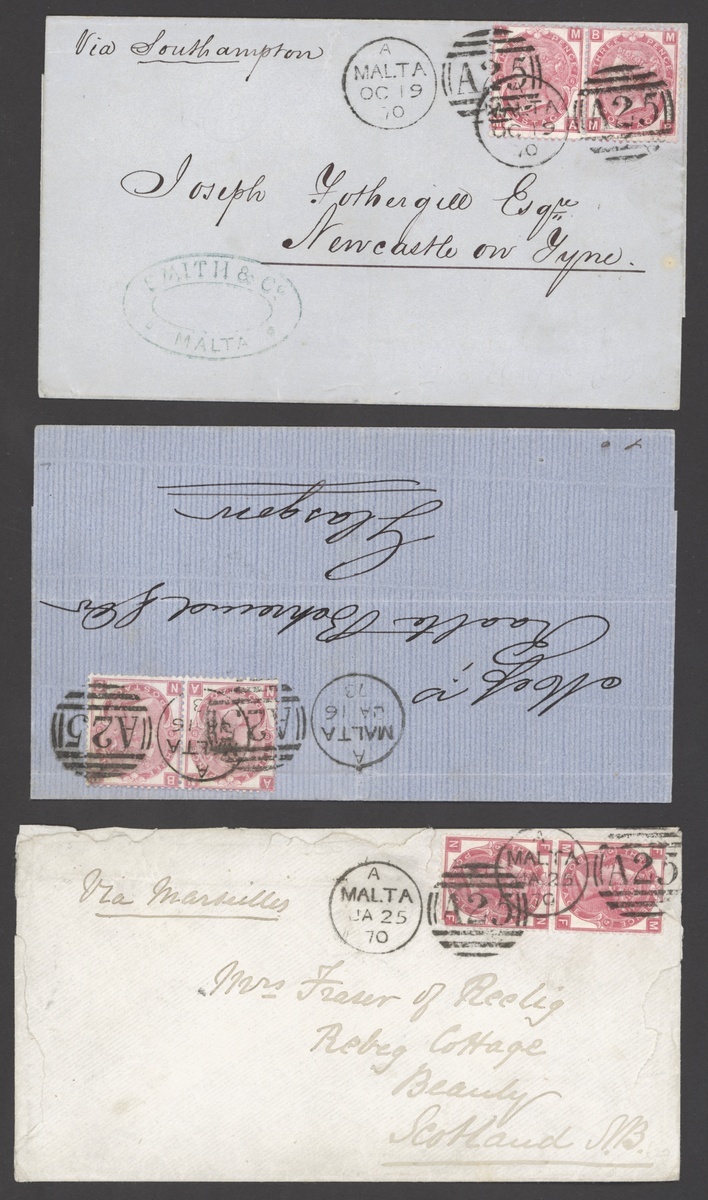 Via Southampton
A
MALTA
OC 19
70
A25
MALTA
OC 19
70
A25
M B M
THREE PENCE
A M
Joseph Fothergill Esqre
Newcastle on Tyne.
SMITH & Co
MALTA
Messrs
Raalte Behrend & Co
Glasgow
A
MALTA
JA 16
73
A
MALTA
JA 16
A25
N A N
B A
Via Marseilles
A
MALTA
JA 25
70
A25
MALTA
JA 25
70
A25
N F M F
F N F M
Mrs Fraser of Reelig
Rebeg Cottage
Beauly
Scotland N.B.